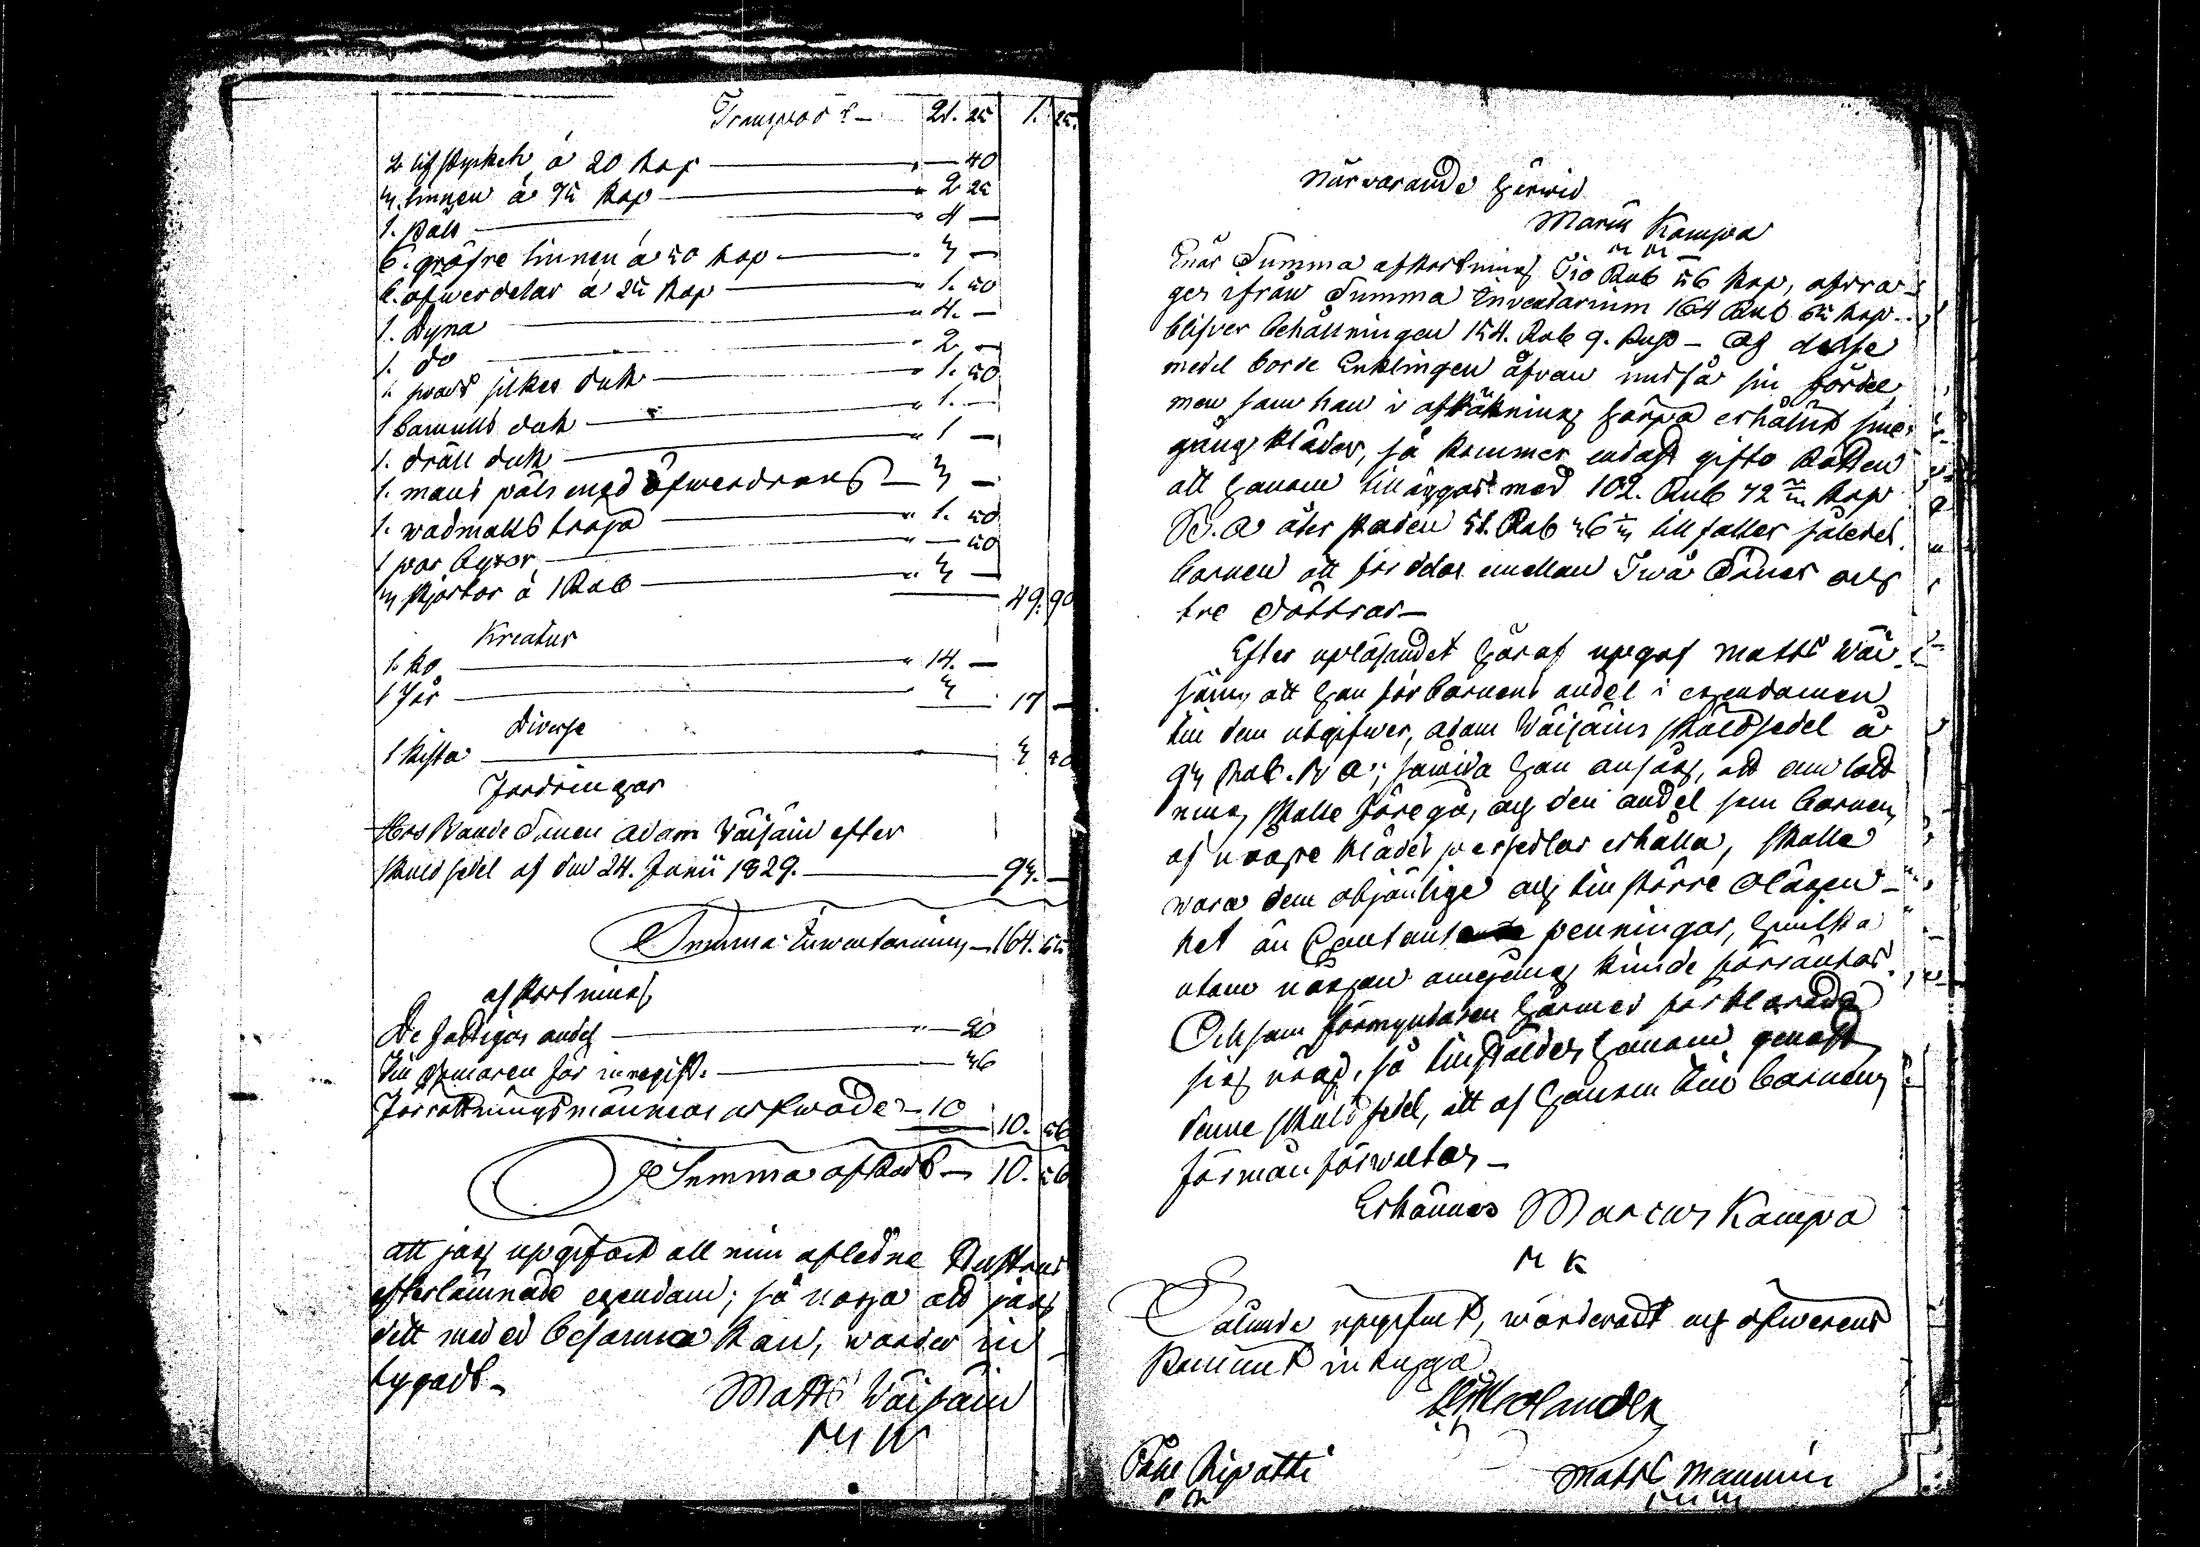 Transport — 21. 25 1. 25.
2 lifstycken à 20 Kop — " — 40
3. linnen à 75 Kop — " 2 25
1. Päls — " 4 —
6. gröfre linnen à 50 Kop — " 3 —
6. öfwerdelar à 25 Kop — " 1. 50
1. Dyna — " 4. —
1. do — " 2 —
1. swart silkes duk — " 1. 50
1 bomulls duk — " 1. —
1. dräll duk — " 1 —
1. mans päls med öfwerdrag — 3 —
1. wadmals tröja — " 1. 50
1 par byxor — " — 50
3 skjortor à 1 Rub — " 3 — 49. 90
Kreatur
1. ko — " 14. —
1 får — 3 17 —
Diverse
1 kista — 3 50
Fordringar
Hos Bonde Sonen Adam Väisäin efter
skuldsedel af den 24. Junii 1829. — 93. —
Summa Inventarium — 164. 65
afkortning
De fattigas andel — " — 20
Till Domaren för inregist. — — 36
Förrättningsmännens arfwode — 10 10. 56
Summa afkort — 10. 56
att jag upgifwit all min aflidne Hustrus
efterlämnade egendom; så noga att jag
dett med ed besanna kan, warder in
tygadt —
Matts Väisäin
närvarande härwid
Maria Kampa
Enär Summa afkortning Tio Rub 56 Kop, afdra-
ges ifrån Summa Inventarium 164 Rub 65 Kop.
blifver behållningen 154. Rub 9. Kop — Af desse
medel borde Enklingen åfvan undfå sin fördel,
men som han i afräkning härpå erhållit sine
gång kläder, så kommer endast gifto Rätten
att honom tilläggas med 102. Rub 72 Kop
S. a åter stoden 51. Rub 36 till faller således
barnen att fördelas emellan Twå Söner och
tre döttrar —
Efter upläsandet häraf upgaf Matts Väi-
säin, att han för barnens andel i egendomen
till dem utgifwer, Adam Väisäins skuldsedel å
93 Rub. B a; sawida han ansåg, att om lott
ning skulle föregå, och den andel som barnen
af någre kläder persedlar erhålla, skulle
wara dem otjänlige och till större olägen-
het än Contant penningar, hwilka
utom någon omgång kunde förräntas.
Och som Förmyndaren härmed förklarade
sig nögd, så tillstäldes honom genast
denne skuldsedel, att af honom till barnens
förmån förwaltas —
Erkännes Marcus Kampa
M K
Sålunda upgifwit, wärderadt och öfwerens
kommit intyga
Påhl Ripatti
Matts Manninen